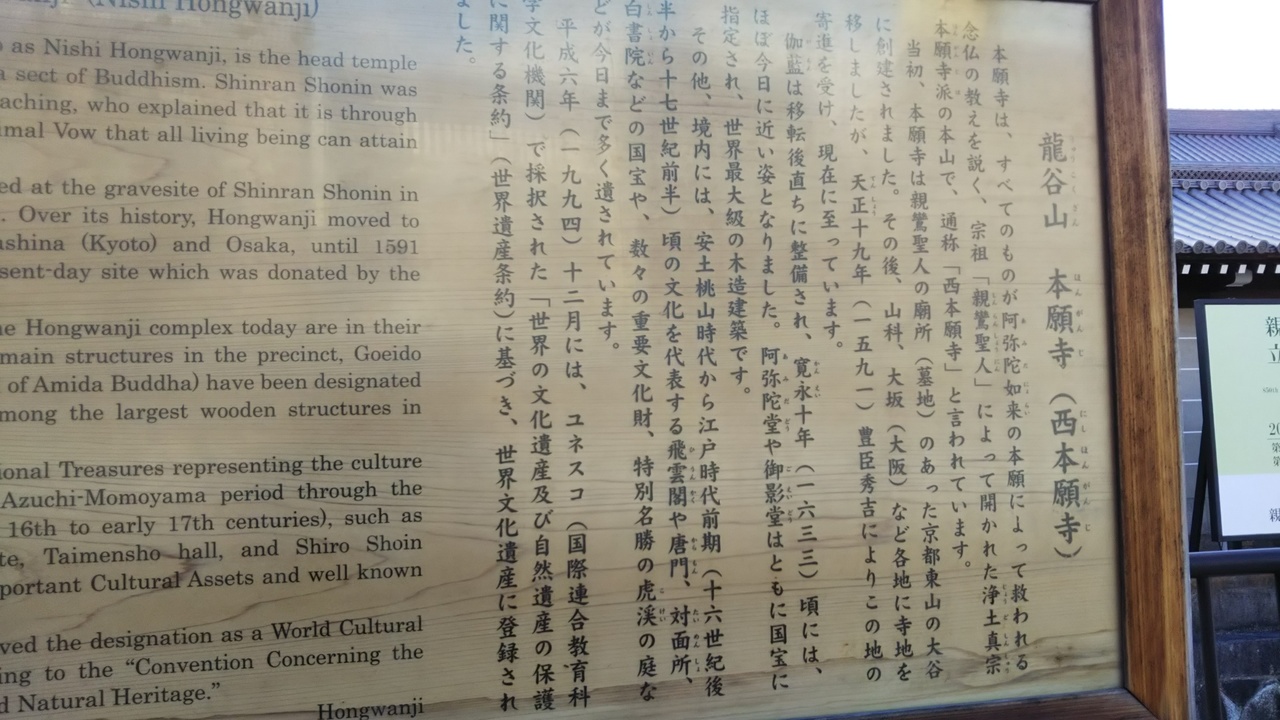 (Nishi Hongwanji)
as Nishi Hongwanji, is the head temple
a sect of Buddhism. Shinran Shonin was
aching, who explained that it is through
imal Vow that all living being can attain
ed at the gravesite of Shinran Shonin in
. Over its history, Hongwanji moved to
ashina (Kyoto) and Osaka, until 1591
sent-day site which was donated by the
he Hongwanji complex today are in their
main structures in the precinct, Goeido
of Amida Buddha) have been designated
mong the largest wooden structures in
ional Treasures representing the culture
Azuchi-Momoyama period through the
16th to early 17th centuries), such as
te, Taimensho hall, and Shiro Shoin
portant Cultural Assets and well known
ved the designation as a World Cultural
ing to the “Convention Concerning the
d Natural Heritage.”
Hongwanji
龍谷山 本願寺（西本願寺）
本願寺は、すべてのものが阿弥陀如来の本願によって救われる
念仏の教えを説く、宗祖「親鸞聖人」によって開かれた浄土真宗
本願寺派の本山で、通称「西本願寺」と言われています。
当初、本願寺は親鸞聖人の廟所（墓地）のあった京都東山の大谷
に創建されました。その後、山科、大坂（大阪）など各地に寺地を
移しましたが、天正十九年（一五九一）豊臣秀吉によりこの地の
寄進を受け、現在に至っています。
伽藍は移転後直ちに整備され、寛永十年（一六三三）頃には、
ほぼ今日に近い姿となりました。阿弥陀堂や御影堂はともに国宝に
指定され、世界最大級の木造建築です。
その他、境内には、安土桃山時代から江戸時代前期（十六世紀後
半から十七世紀前半）頃の文化を代表する飛雲閣や唐門、対面所、
白書院などの国宝や、数々の重要文化財、特別名勝の虎渓の庭な
どが今日まで多く遺されています。
平成六年（一九九四）十二月には、ユネスコ（国際連合教育科
学文化機関）で採択された「世界の文化遺産及び自然遺産の保護
に関する条約」（世界遺産条約）に基づき、世界文化遺産に登録され
ました。
親
立
20
親